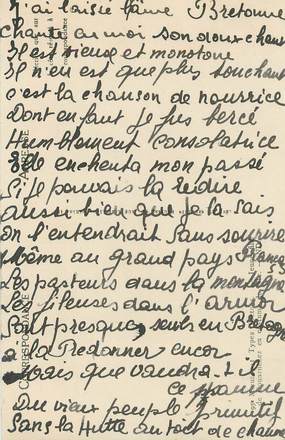 J'ai laissé l'âme Bretonne
Chante en moi son doux chant
Il est vieux et monotone
Il n'en est que plus touchant
c'est la chanson de nourrice
Dont enfant je fus bercé
Humblement consolatrice
Elle enchenta mon passé
Si je pouvais la redire
aussi bien que je la sais
on l'entendrait sans sourire
Même au grand pays
Les pasteurs dans la montagne
Les fileuses dans l'armor
Sont presque seuls en Bretagn
a la Fredonner encor
Mais que vaudra-t-il
ce
Du vieux peuple primitif
Sans la Hutte au toit de chaume
CORRESPONDANCE
ADRESSE